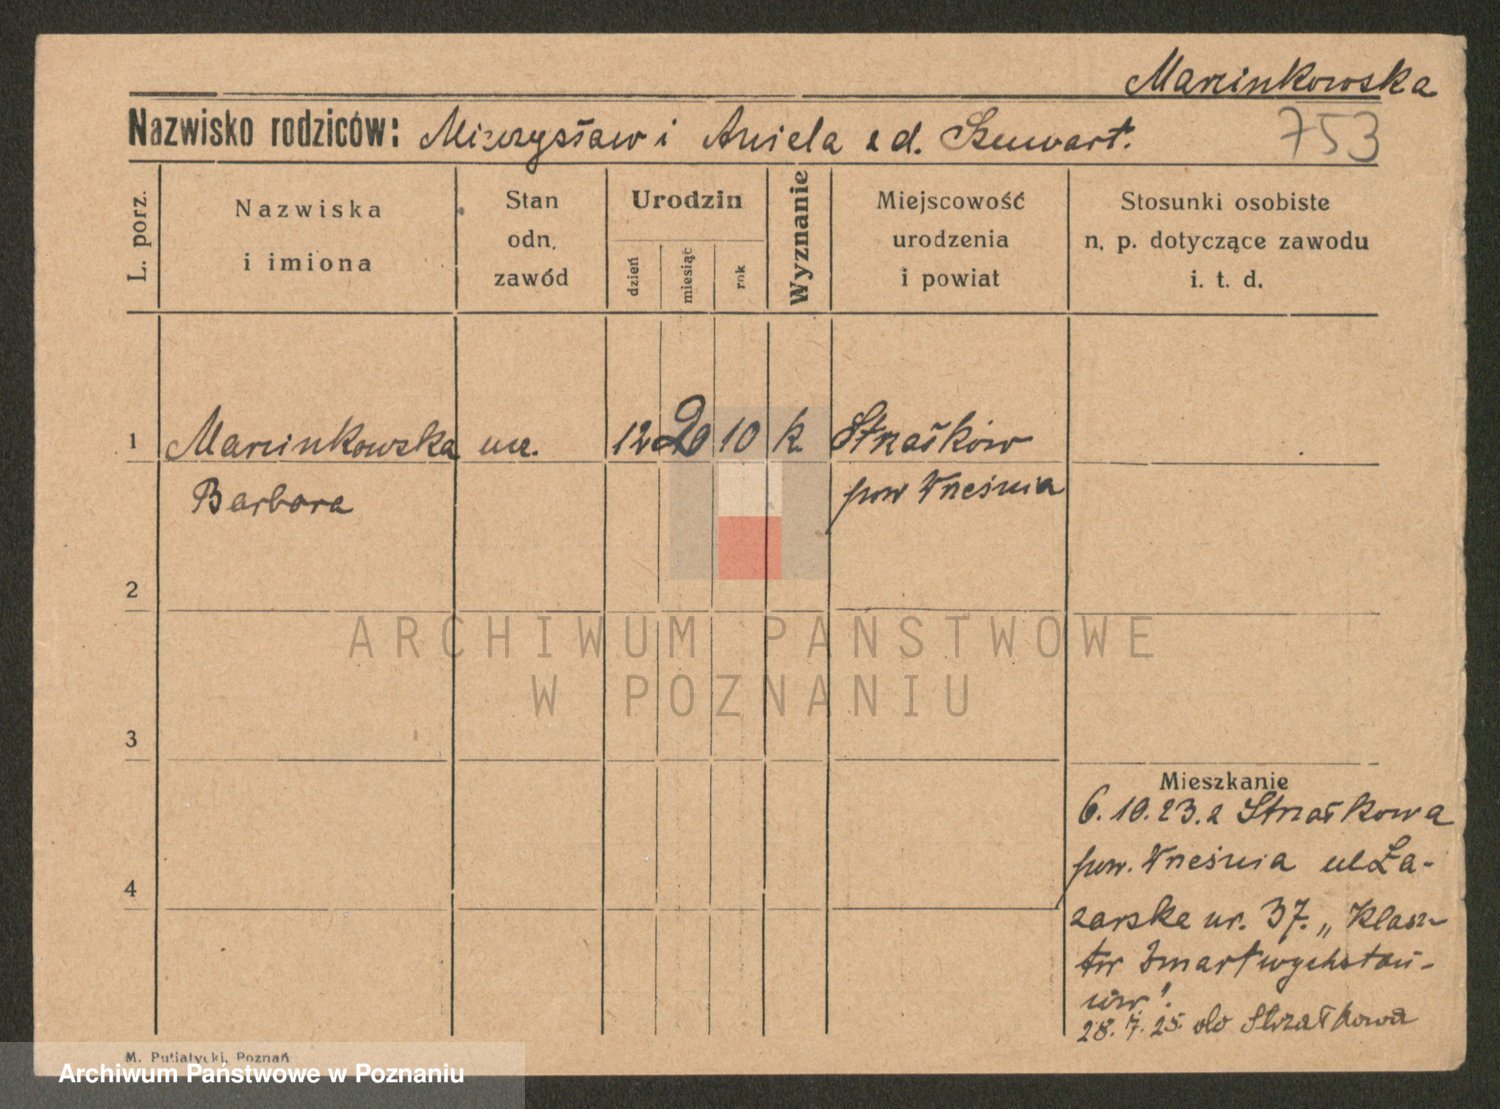 Marcinkowska
Nazwisko rodziców: Mieczysław i Aniela zd. Szuwart.
753
L. porz.
Nazwiska
i imiona
Stan
odn.
zawód
Urodzin
dzień
miesiąc
rok
Wyznanie
Miejscowość
urodzenia
i powiat
Stosunki osobiste
n. p. dotyczące zawodu
i. t. d.
1 Marcinkowska ucz. 12 2 10 k. Strzałków
Barbara pow Września
2
3
4
ARCHIWUM PAŃSTWOWE
W POZNANIU
Mieszkanie
6.10.23. z Strzałkowa
pow. Września ul Ła-
zarska nr. 37. „Klasz-
tor Zmartwychstań-
ców".
28.7.25. do Strzałkowa
M. Putiatycki, Poznań
Archiwum Państwowe w Poznaniu